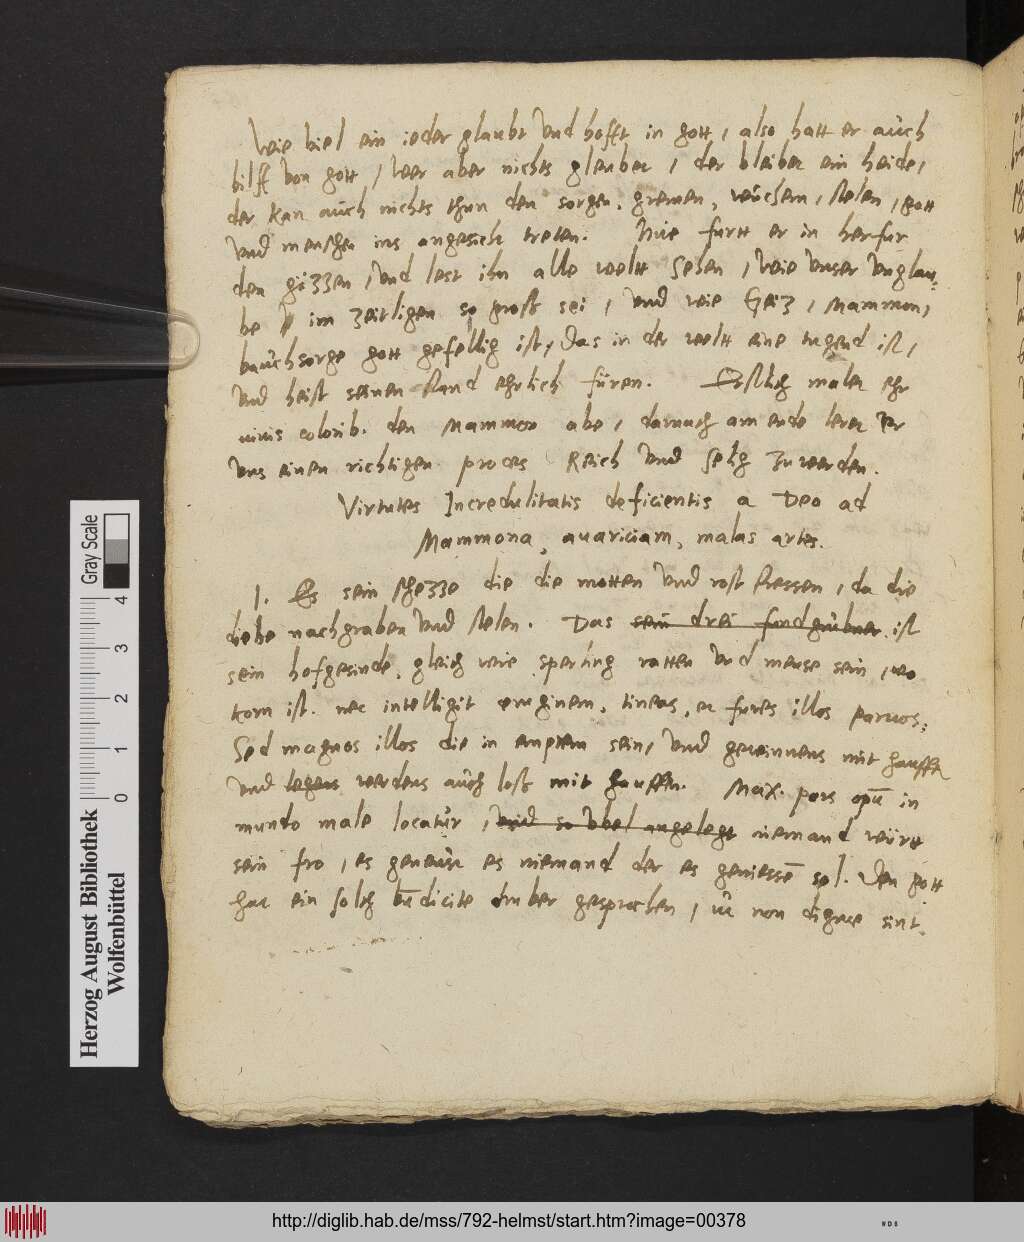 Wie viel ein ieder glaubt vnd hofft in gott, also hatt er auch
hilff von gott, wer aber nichts gleubet, der bleibet ein heide,
der kan auch nichts thun den sorgen, gremen, wuchern, stelen, gott
vnd menschen ins angesicht treten. Nue furtt er in herfur
den gözzen, vnd lest ihn alle weltt sehen, wie vnser vnglau-
be im zeitligen so groß sei, vnd wie Geiz, Mammon,
bauchsorge gott gefellig ist, das in der weltt eine tugend ist,
vnd heist seinen stand ehrlich füren. Erstlich malet ehr
viuis colorib. den Mammon abe, darnach am ende leret er
vns einen richtigen proces Reich vnd selig zu werden.
Virtutes Incredulitatis deficientis a Deo ad
Mammona, auariciam, malas artes.
1. Es sein schezze die die motten vnd rost fressen, da die
diebe nachgraben vnd stelen. Das sein drei fundgrubner ist
sein hofgesinde, gleich wie sperling ratten vnd meuse sein, wo
korn ist. nec intelligit eruginem, tineas, et fures illos paruos,
Sed magnos illos die in emptern sein, vnd gewinnens mit hauffen
vnd werdens auch loß mit hauffen. Max. pars opu in
mundo male locatur, vnd so vbel angelegt niemand wirtt
sein fro, es geneust es niemand der es geniessē sol. Den gott
hat ein solch bn̄dicite druber gesprochen, ut non digne sint.
Herzog August Bibliothek
Wolfenbüttel
Gray Scale
0 1 2 3 4
http://diglib.hab.de/mss/792-helmst/start.htm?image=00378